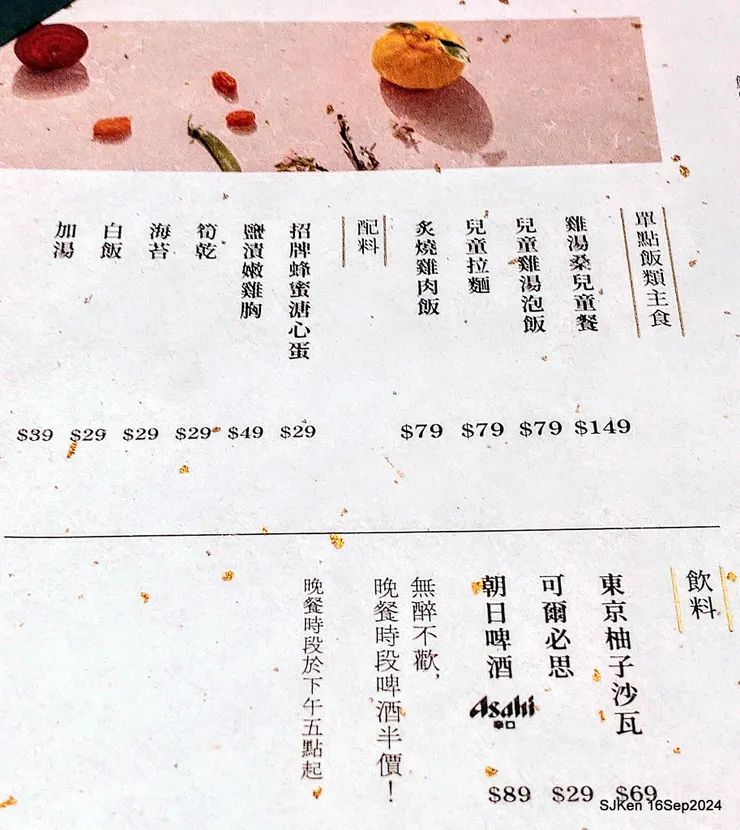 單點飯類主食
雞湯桑兒童餐 $149
兒童雞湯泡飯 $79
兒童拉麵 $79
炙燒雞肉飯 $79
配料
招牌蜂蜜溏心蛋 $29
鹽漬嫩雞胸 $49
筍乾 $29
海苔 $29
白飯 $29
加湯 $39
飲料
東京柚子沙瓦 $69
可爾必思 $29
朝日啤酒 $89
Asahi
辛口
無醉不歡,
晚餐時段啤酒半價!
晚餐時段於下午五點起
SJKen 16Sep2024